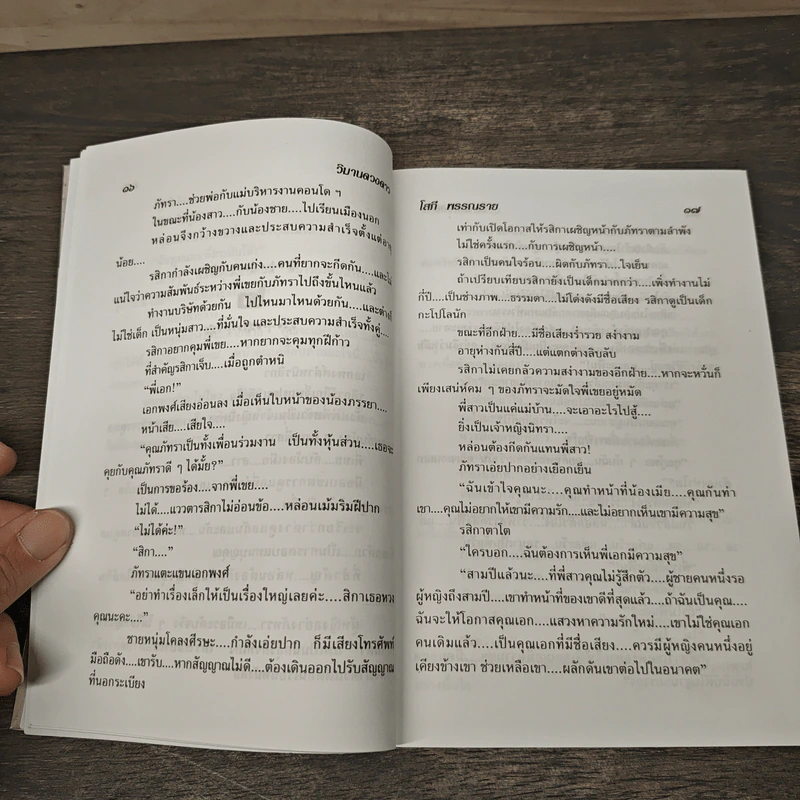 ๑๖
วิมานดวงดาว
ภัทรา....ช่วยพ่อกับแม่บริหารงานคอนโด ฯ
ในขณะที่น้องสาว....กับน้องชาย....ไปเรียนเมืองนอก
หล่อนจึงกว้างขวางและประสบความสำเร็จตั้งแต่อายุ
น้อย....
รสิกากำลังเผชิญกับคนเก่ง....คนที่ยากจะกีดกัน....และไม่
แน่ใจว่าความสัมพันธ์ระหว่างพี่เขยกับภัทราไปถึงขั้นไหนแล้ว
ทำงานบริษัทด้วยกัน ไปไหนมาไหนด้วยกัน....และต่างก็
ไม่ใช่เด็ก เป็นหนุ่มสาว....ที่มั่นใจ และประสบความสำเร็จทั้งคู่....
รสิกาอยากคุมพี่เขย....หากยากจะคุมทุกฝีก้าว
ที่สำคัญรสิกาเจ็บ....เมื่อถูกตำหนิ
“พี่เอก!”
เอกพงศ์เสียงอ่อนลง เมื่อเห็นใบหน้าของน้องภรรยา....
หน้าเสีย....เสียใจ....
“คุณภัทราเป็นทั้งเพื่อนร่วมงาน เป็นทั้งหุ้นส่วน....เธอจะ
คุยกับคุณภัทราดี ๆ ได้มั้ย?”
เป็นการขอร้อง....จากพี่เขย....
ไม่ได้....แววตารสิกาไม่อ่อนข้อ....หล่อนเม้มริมฝีปาก
“ไม่ได้ค่ะ!”
“สิกา....”
ภัทราแตะแขนเอกพงศ์
“อย่าทำเรื่องเด็กให้เป็นเรื่องใหญ่เลยค่ะ....สิกาเธอหวง
คุณนะคะ....”
ชายหนุ่มโคลงศีรษะ....กำลังเอ่ยปาก ก็มีเสียงโทรศัพท์
มือถือดัง....เขารับ....หากสัญญาณไม่ดี....ต้องเดินออกไปรับสัญญาณ
ที่นอกระเบียง
โสภี พรรณราย
๑๗
เท่ากับเปิดโอกาสให้รสิกาเผชิญหน้ากับภัทราตามลำพัง
ไม่ใช่ครั้งแรก....กับการเผชิญหน้า....
รสิกาเป็นคนใจร้อน....ผิดกับภัทรา....ใจเย็น
ถ้าเปรียบเทียบรสิกายังเป็นเด็กมากกว่า....เพิ่งทำงานไม่
กี่ปี....เป็นช่างภาพ....ธรรมดา....ไม่โด่งดังมีชื่อเสียง รสิกาดูเป็นเด็ก
กะโปโลนัก
ขณะที่อีกฝ่าย....มีชื่อเสียงร่ำรวย สง่างาม
อายุห่างกันสี่ปี....แต่แตกต่างลิบลับ
รสิกาไม่เคยกลัวความสง่างามของอีกฝ่าย....หากจะหวั่นก็
เพียงเสน่ห์คม ๆ ของภัทราจะมัดใจพี่เขยอยู่หมัด
พี่สาวเป็นแค่แม่บ้าน....จะเอาอะไรไปสู้....
ยิ่งเป็นเจ้าหญิงนิทรา....
หล่อนต้องกีดกันแทนพี่สาว!
ภัทราเอ่ยปากอย่างเยือกเย็น
“ฉันเข้าใจคุณนะ....คุณทำหน้าที่น้องเมีย....คุณกันท่า
เขา....คุณไม่อยากให้เขามีความรัก....และไม่อยากเห็นเขามีความสุข”
รสิกาตาโต
“ใครบอก....ฉันต้องการเห็นพี่เอกมีความสุข”
“สามปีแล้วนะ....ที่พี่สาวคุณไม่รู้สึกตัว....ผู้ชายคนหนึ่งรอ
ผู้หญิงถึงสามปี....เขาทำหน้าที่ของเขาดีที่สุดแล้ว....ถ้าฉันเป็นคุณ....
ฉันจะให้โอกาสคุณเอก....แสวงหาความรักใหม่....เขาไม่ใช่คุณเอก
คนเดิมแล้ว....เป็นคุณเอกที่มีชื่อเสียง....ควรมีผู้หญิงคนหนึ่งอยู่
เคียงข้างเขา ช่วยเหลือเขา....ผลักดันเขาต่อไปในอนาคต”